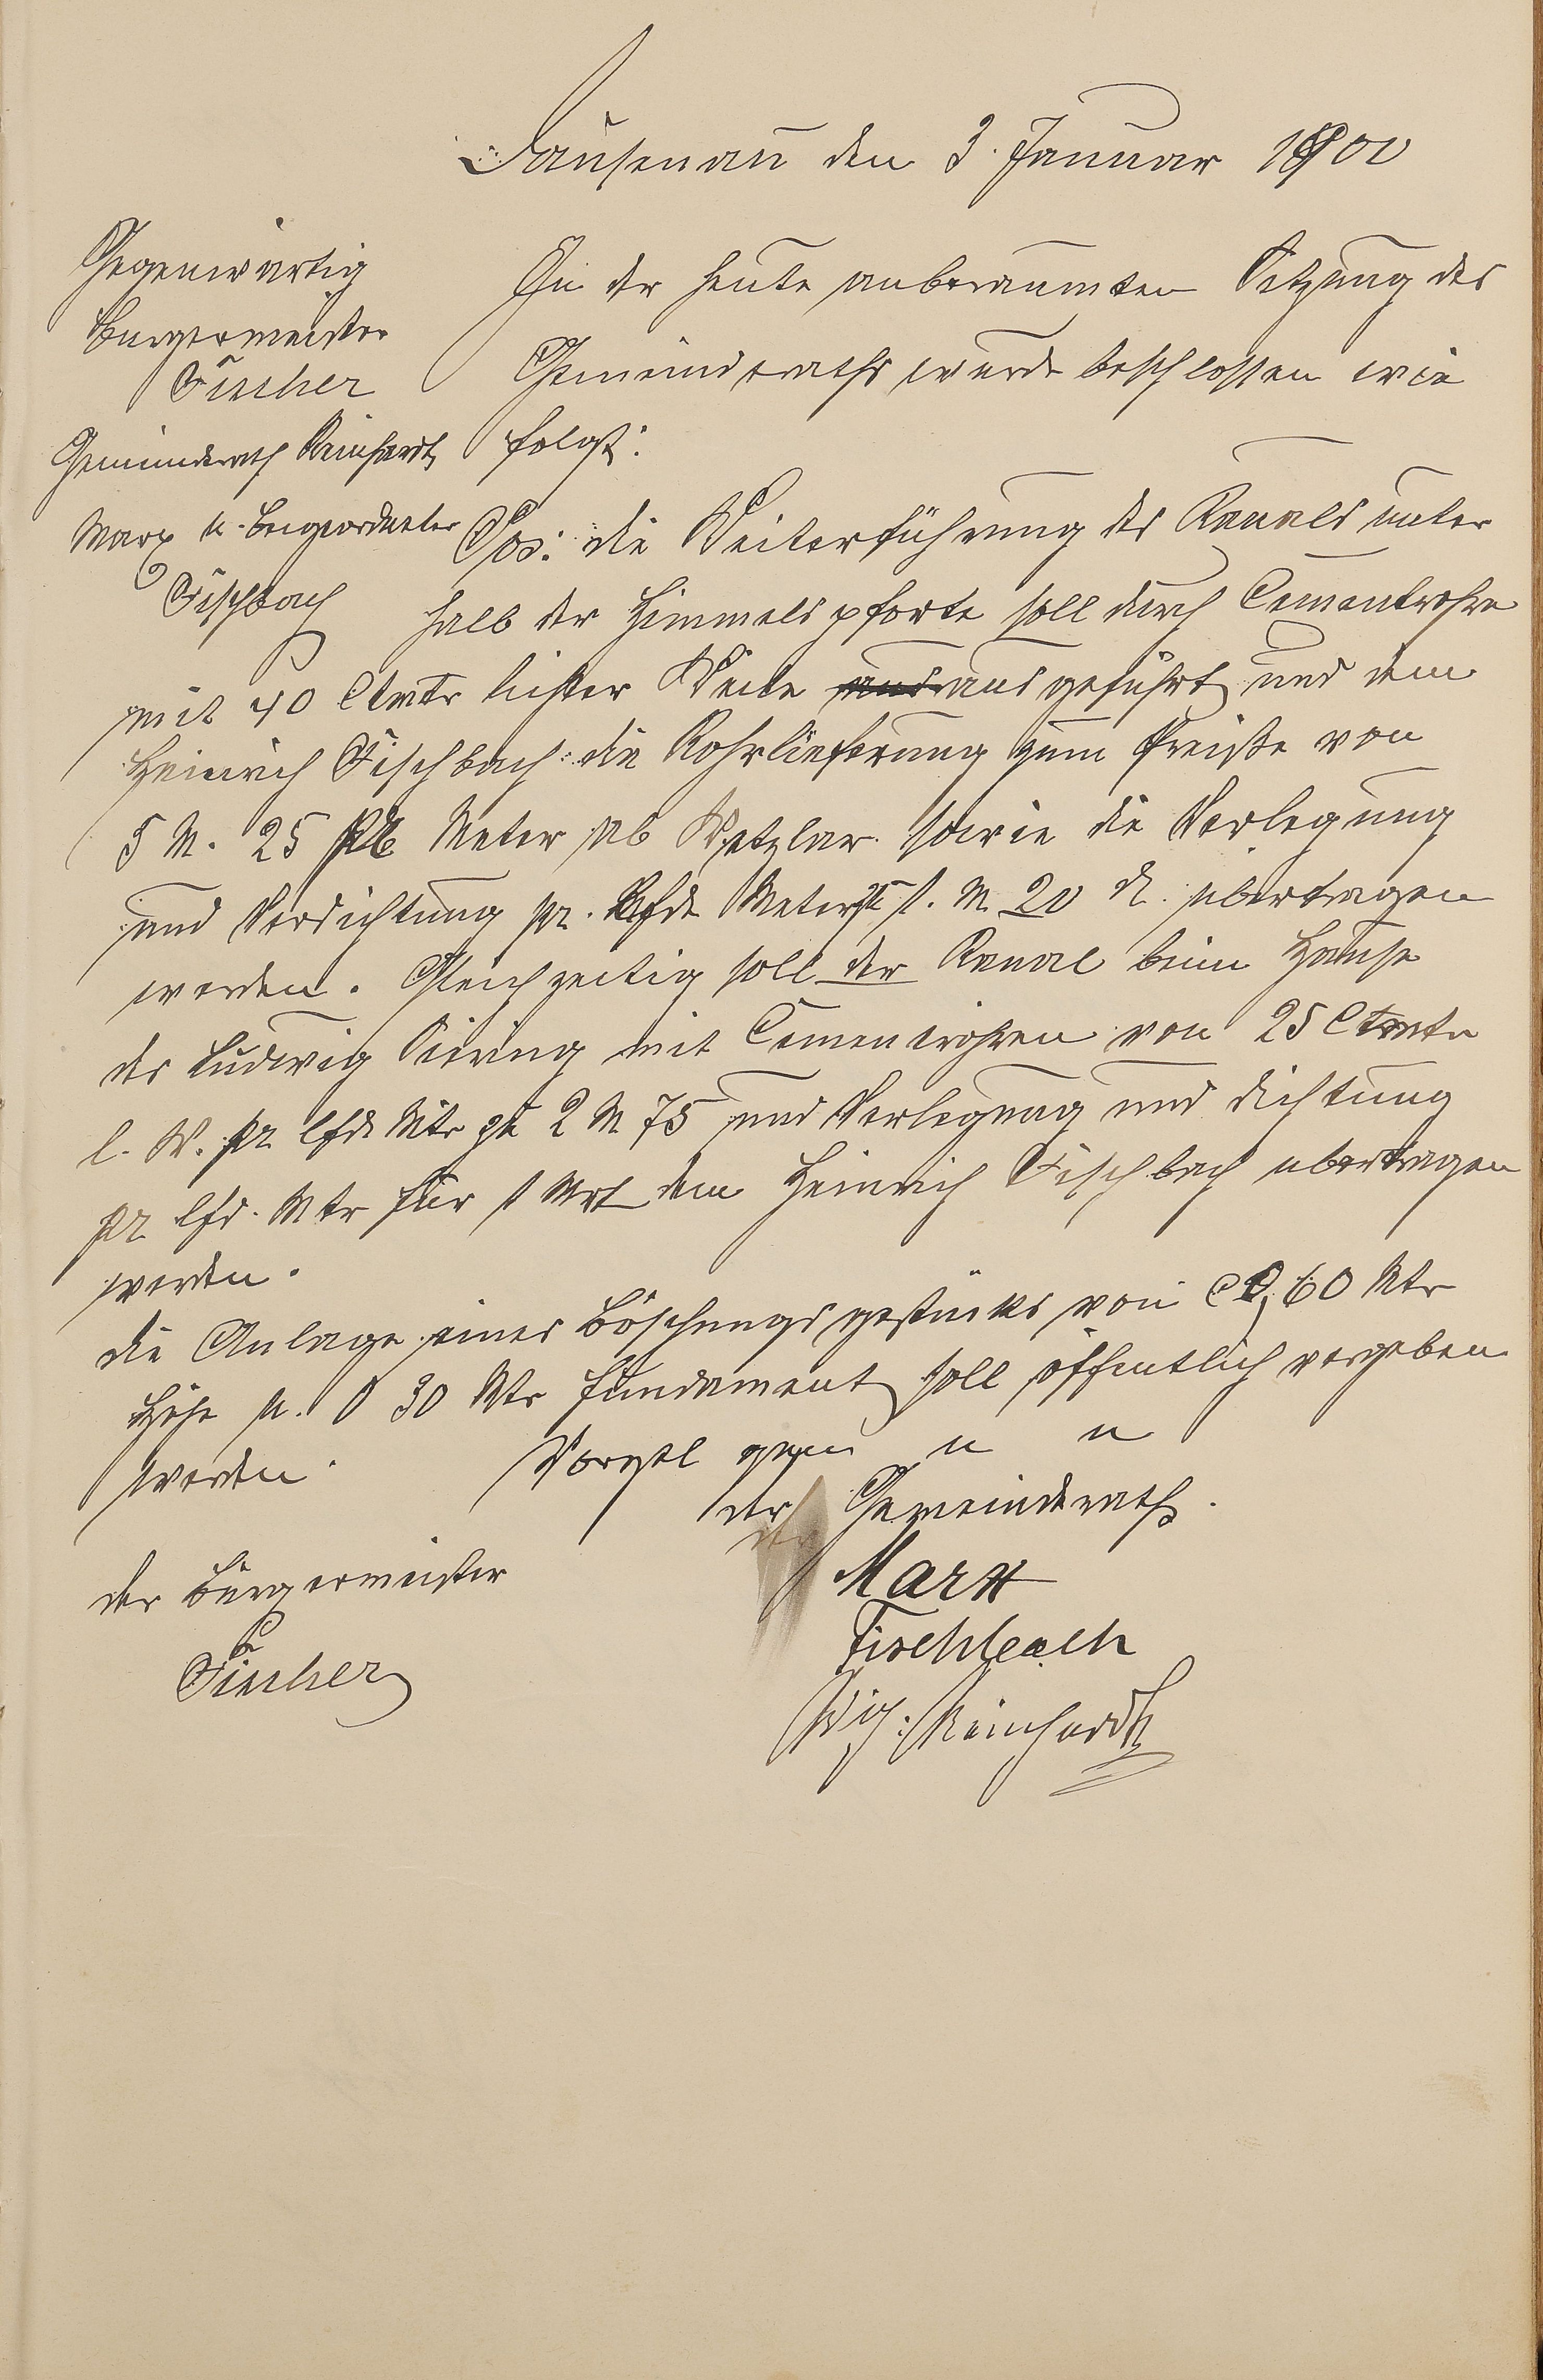 Dausenau den 3. Januar 1900
Gegenwärtig
Bürgermeister
Fischer
Gemeinderath Reinhardt
Marx u. Beigeordneter
Fischbach
In der heute anberaumten Sitzung des
Gemeinderaths wurde beschlossen wie
folgt:
die Weiterführung des Kanals unter
halb der Himmelspforte soll durch Cementrohre
mit 40 Ctmtr lichter Weite ausgeführt und dem
Heinrich Fischbach die Rohrlieferung zum Preiße von
5 M. 25 Meter ab Wetzlar sowie die Verlegung
und Verdichtung pr. lfde Meter 1. M 20 d. übertragen
werden. Gleichzeitig soll der Kanal beim Hause
des Ludwig mit Cementrohren von 25 Ctmtr
l. W. pr lfde Mtr zu 2 M 75 und Verlegung und Dichtung
pr lfd. Mtr für 1 Mrk dem Heinrich Fischbach übertragen
werden.
die Anlage eines Böschungsgestücks von 60 Mtr
Höhe u. 0 30 Mtr Fundament soll öffentlich vergeben
werden.
Vorgel gen u u
der Gemeinderath.
Marx
Fischbach
Reinhardt
der Bürgermeister
Fischer